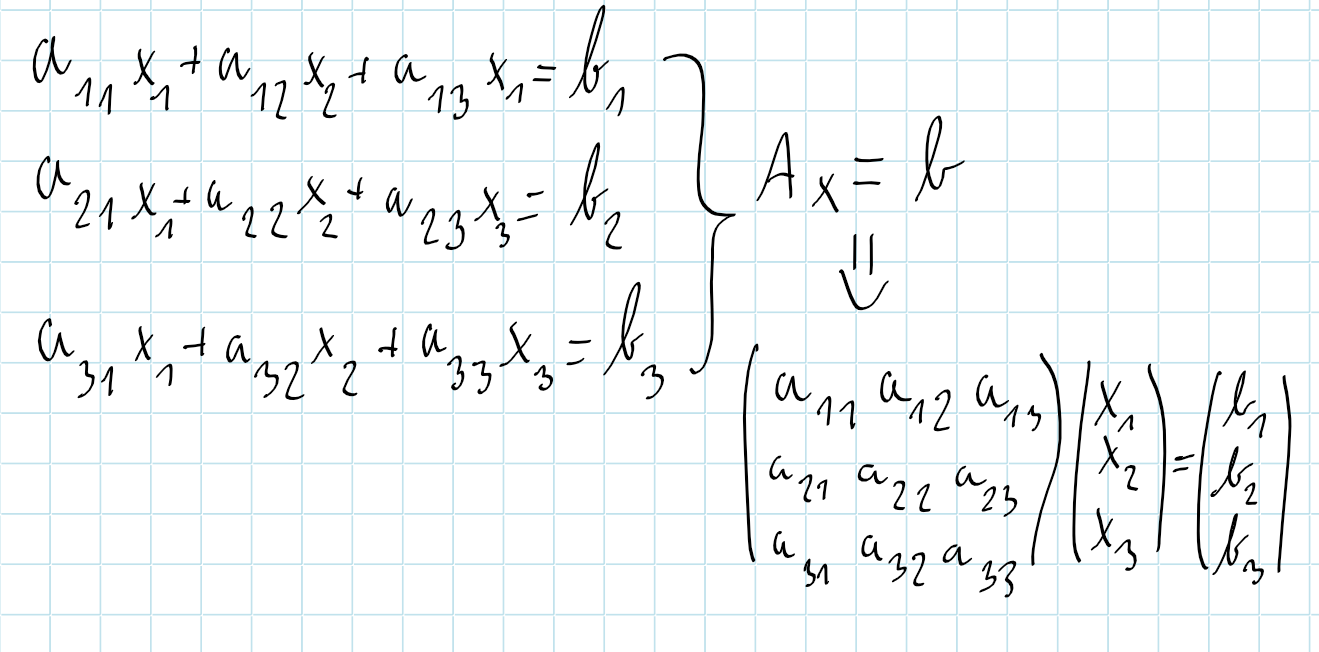 a₁₁x₁ + a₁₂x₂ + a₁₃x₁ = b₁
a₂₁x₁ + a₂₂x₂ + a₂₃x₃ = b₂
a₃₁x₁ + a₃₂x₂ + a₃₃x₃ = b₃
} Aₓ = b
⇓
(a₁₁ a₁₂ a₁₃) (x₁) = (b₁)
(a₂₁ a₂₂ a₂₃) (x₂) = (b₂)
(a₃₁ a₃₂ a₃₃) (x₃) = (b₃)